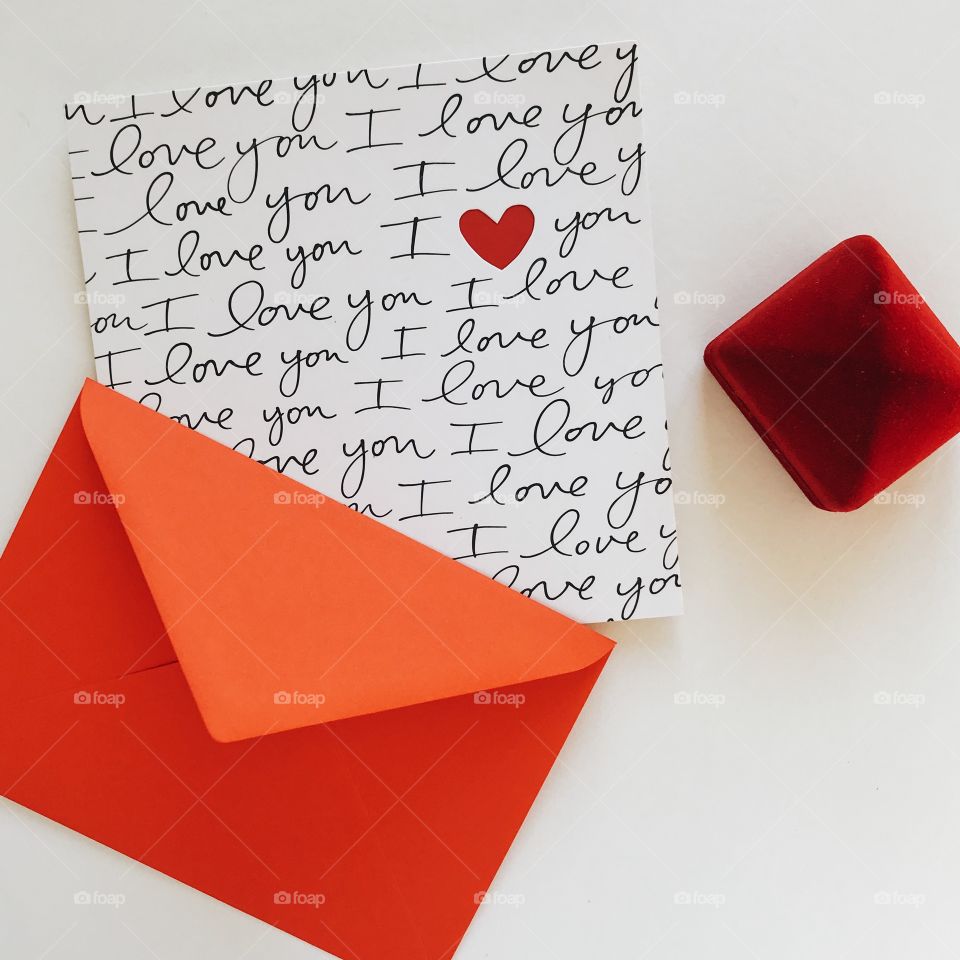 I love you I love y
I love you I love you
love you I love y
I love you I you
you I love you I love
I love you I love you
love you I love yo
love you I love
I love yo
I love y
love you
foap